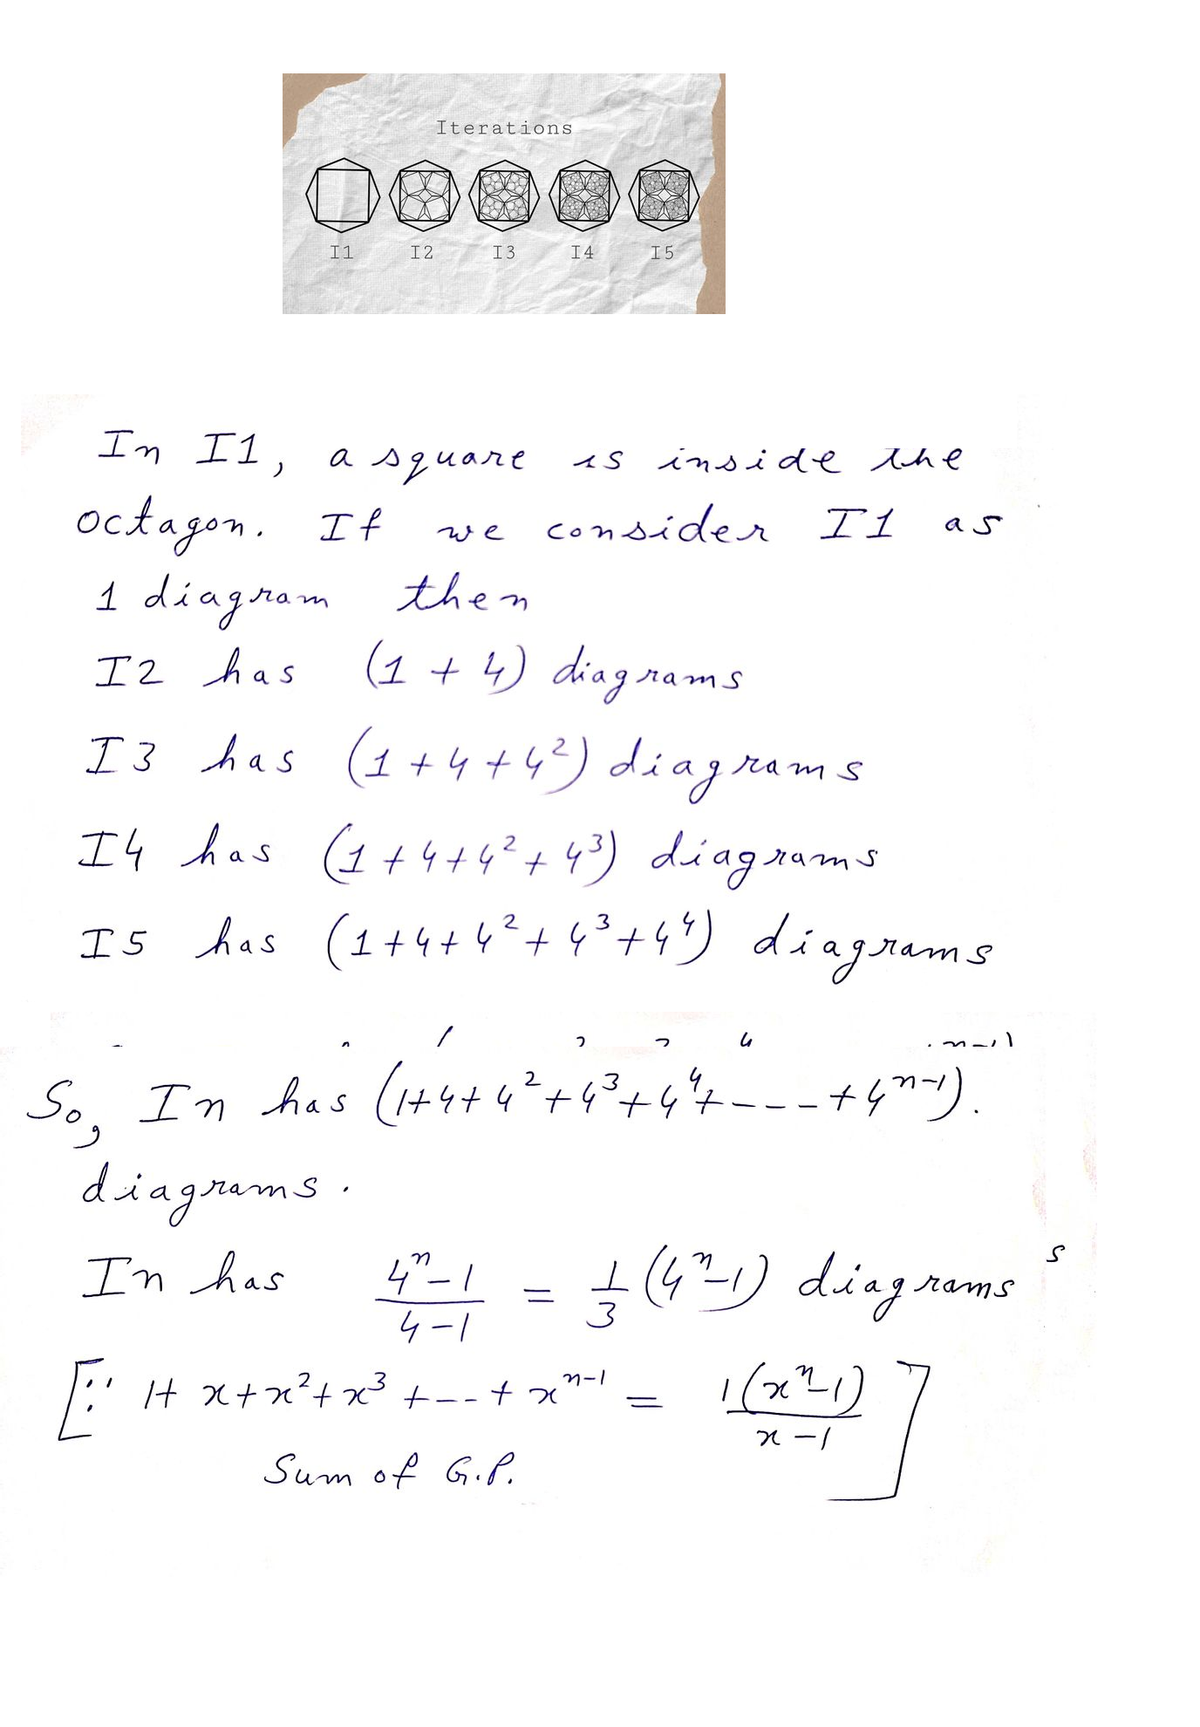 Iterations
I1 I2 I3 I4 I5
In I1, a square is inside the
octagon. If we consider I1 as
1 diagram then
I2 has (1 + 4) diagrams
I3 has (1 + 4 + 4²) diagrams
I4 has (1 + 4 + 4² + 4³) diagrams
I5 has (1 + 4 + 4² + 4³ + 4⁴) diagrams
So, In has (1+4+4²+4³+4⁴+----+4ⁿ⁻¹).
diagrams.
In has (4ⁿ-1)/(4-1) = 1/3 (4ⁿ-1) diagrams s
[∵ 1+x+x²+x³+---+xⁿ⁻¹ = 1(xⁿ-1)/(x-1)]
Sum of G.P.